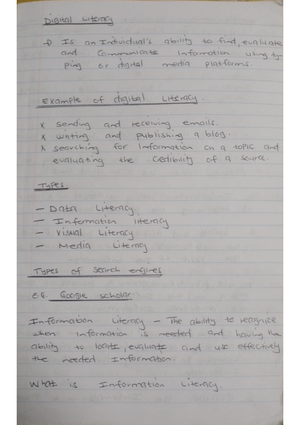 Digital Literacy
Is an Individual's ability to find, evaluate
and communicate Information using ty
ping or digital media platforms.
Example of digital Literacy
x sending and receiving emails.
x writing and publishing a blog.
x searching for Information on a topic and
evaluating the credibility of a source.
Types
- Data Literacy
- Information literacy
- Visual Literacy
- Media Literacy
Types of search engines
e.g. Google scholar
Information Literacy - The ability to recognize
when information is needed and having the
ability to locate, evaluate and use effectively
the needed Information.
What is Information Literacy.